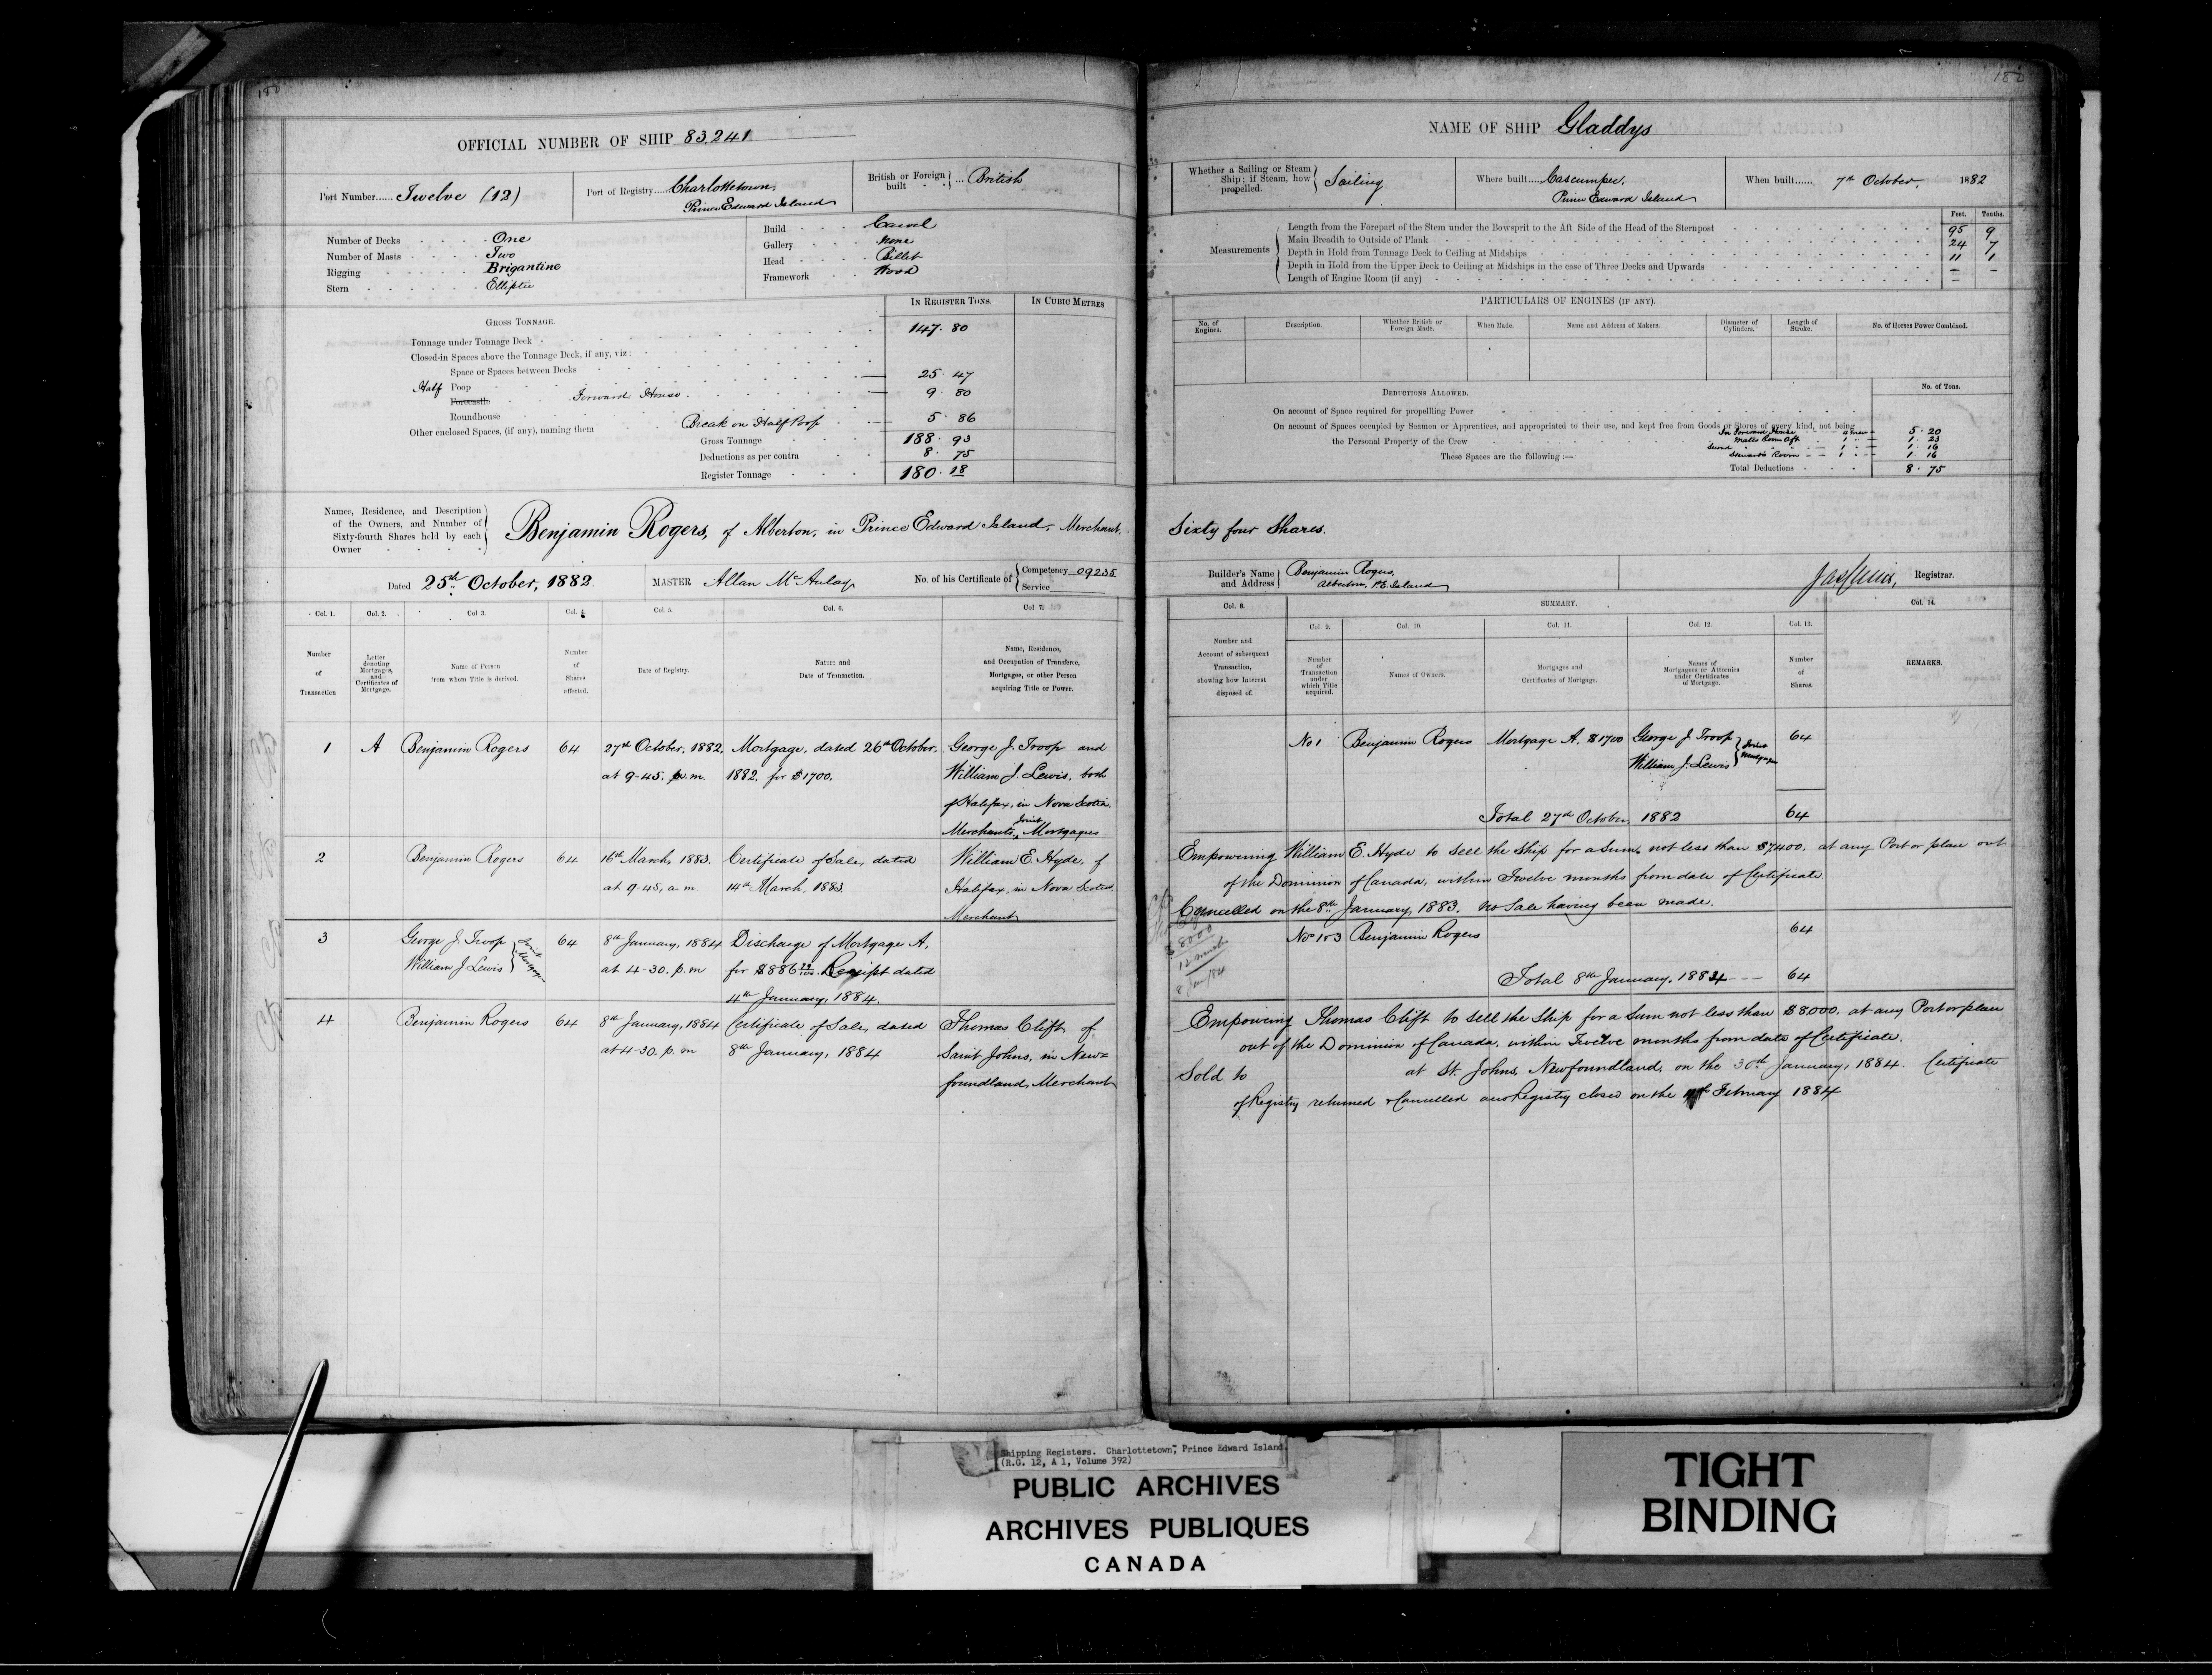 180
OFFICIAL NUMBER OF SHIP 83,241
Port Number...... Twelve (12)
Port of Registry..... Charlottetown,
Prince Edward Island
British or Foreign built ... British
Number of Decks One
Number of Masts Two
Rigging Brigantine
Stern Elliptic
Build Carvel
Gallery None
Head Billet
Framework Wood
GROSS TONNAGE.
IN REGISTER TONS.
IN CUBIC METRES
Tonnage under Tonnage Deck 147. 80
Closed-in Spaces above the Tonnage Deck, if any, viz:
Space or Spaces between Decks
Half Poop 25. 47
Forecastle Forward House 9. 80
Roundhouse
Other enclosed Spaces, (if any), naming them Break on Half Poop 5. 86
Gross Tonnage 188. 93
Deductions as per contra 8. 75
Register Tonnage 180. 18
Names, Residence, and Description
of the Owners, and Number of
Sixty-fourth Shares held by each
Owner
Benjamin Rogers, of Alberton, in Prince Edward Island, Merchant.
Dated 25th October, 1882.
MASTER Allan McAulay
No. of his Certificate of Competency 09235
Service
Col. 1. Col. 2. Col 3. Col. 4. Col. 5. Col. 6. Col 7.
Number
of
Transaction
Letter
denoting
Mortgages,
and
Certificates of
Mortgage.
Name of Person
from whom Title is derived.
Number
of
Shares
affected.
Date of Registry.
Nature and
Date of Transaction.
Name, Residence,
and Occupation of Transferee,
Mortgagee, or other Person
acquiring Title or Power.
1 A Benjamin Rogers 64 27th October, 1882. Mortgage, dated 26th October, George J. Troop and
at 9-45, p.m. 1882, for $1700. William J. Lewis, both
of Halifax, in Nova Scotia.
Merchants, Joint Mortgagees
2 Benjamin Rogers 64 16th March, 1883. Certificate of Sale, dated William E Hyde, of
at 9-45, a.m. 14th March, 1883. Halifax, in Nova Scotia
Merchant
3 George J. Troop 64 8th January, 1884 Discharge of Mortgage A,
William J Lewis Joint Mortgagees at 4-30. p.m for $886 Receipt dated
4th January, 1884.
4 Benjamin Rogers 64 8th January, 1884 Certificate of Sale, dated Thomas Clift of
at 4-30. p.m 8th January, 1884 Saint Johns, in New=
foundland, Merchant
180
NAME OF SHIP Gladdys
Whether a Sailing or Steam
Ship; if Steam, how
propelled.
Sailing
Where built..... Cascumpec,
Prince Edward Island
When built...... 7th October, 1882
Feet. Tenths.
Measurements
Length from the Forepart of the Stem under the Bowsprit to the Aft Side of the Head of the Sternpost 95 9
Main Breadth to Outside of Plank 24 7
Depth in Hold from Tonnage Deck to Ceiling at Midships 11 1
Depth in Hold from the Upper Deck to Ceiling at Midships in the case of Three Decks and Upwards – –
Length of Engine Room (if any) –
PARTICULARS OF ENGINES (IF ANY).
No. of
Engines.
Description.
Whether British or
Foreign Made.
When Made.
Name and Address of Makers.
Diameter of
Cylinders.
Length of
Stroke.
No. of Horses Power Combined.
DEDUCTIONS ALLOWED.
No. of Tons.
On account of Space required for propelling Power
On account of Spaces occupied by Seamen or Apprentices, and appropriated to their use, and kept free from Goods or Stores of every kind, not being
the Personal Property of the Crew
These Spaces are the following:—
In Forward House 5. 20
Mates Room Aft 1 1. 23
Second 1 1. 16
Steward's Room 1 1. 16
Total Deductions 8. 75
Sixty four Shares.
Builder's Name
and Address
Benjamin Rogers,
Alberton, P.E. Island
Registrar.
Col. 8. SUMMARY. Col. 14.
Col. 9. Col. 10. Col. 11. Col. 12. Col. 13.
Number and
Account of subsequent
Transaction,
showing how Interest
disposed of.
Number
of
Transaction
under
which Title
acquired.
Names of Owners.
Mortgages and
Certificates of Mortgage.
Names of
Mortgagees or Attornies
under Certificates
of Mortgage.
Number
of
Shares.
REMARKS.
No 1 Benjamin Rogers Mortgage A. $1700 George J. Troop 64
William J. Lewis Joint Mortgagees
Total 27th October, 1882 64
Empowering William E. Hyde to sell the Ship for a Sum, not less than $7400, at any Port or place out
of the Dominion of Canada, within Twelve months from date of Certificate.
Cancelled on the 8th January, 1883. No Sale having been made.
$8000
12 months
8 Jan/84
Nos 1 & 3 Benjamin Rogers 64
Total 8th January, 1884 64
Empowering Thomas Clift to sell the Ship for a Sum not less than $8000, at any Port or place
out of the Dominion of Canada, within Twelve months from date of Certificate.
Sold to at St. Johns, Newfoundland, on the 30th January, 1884. Certificate
of Registry returned & Cancelled and Registry closed on the February 1884
Shipping Registers. Charlottetown, Prince Edward Island.
(R.G. 12, A 1, Volume 392)
PUBLIC ARCHIVES
ARCHIVES PUBLIQUES
CANADA
TIGHT
BINDING